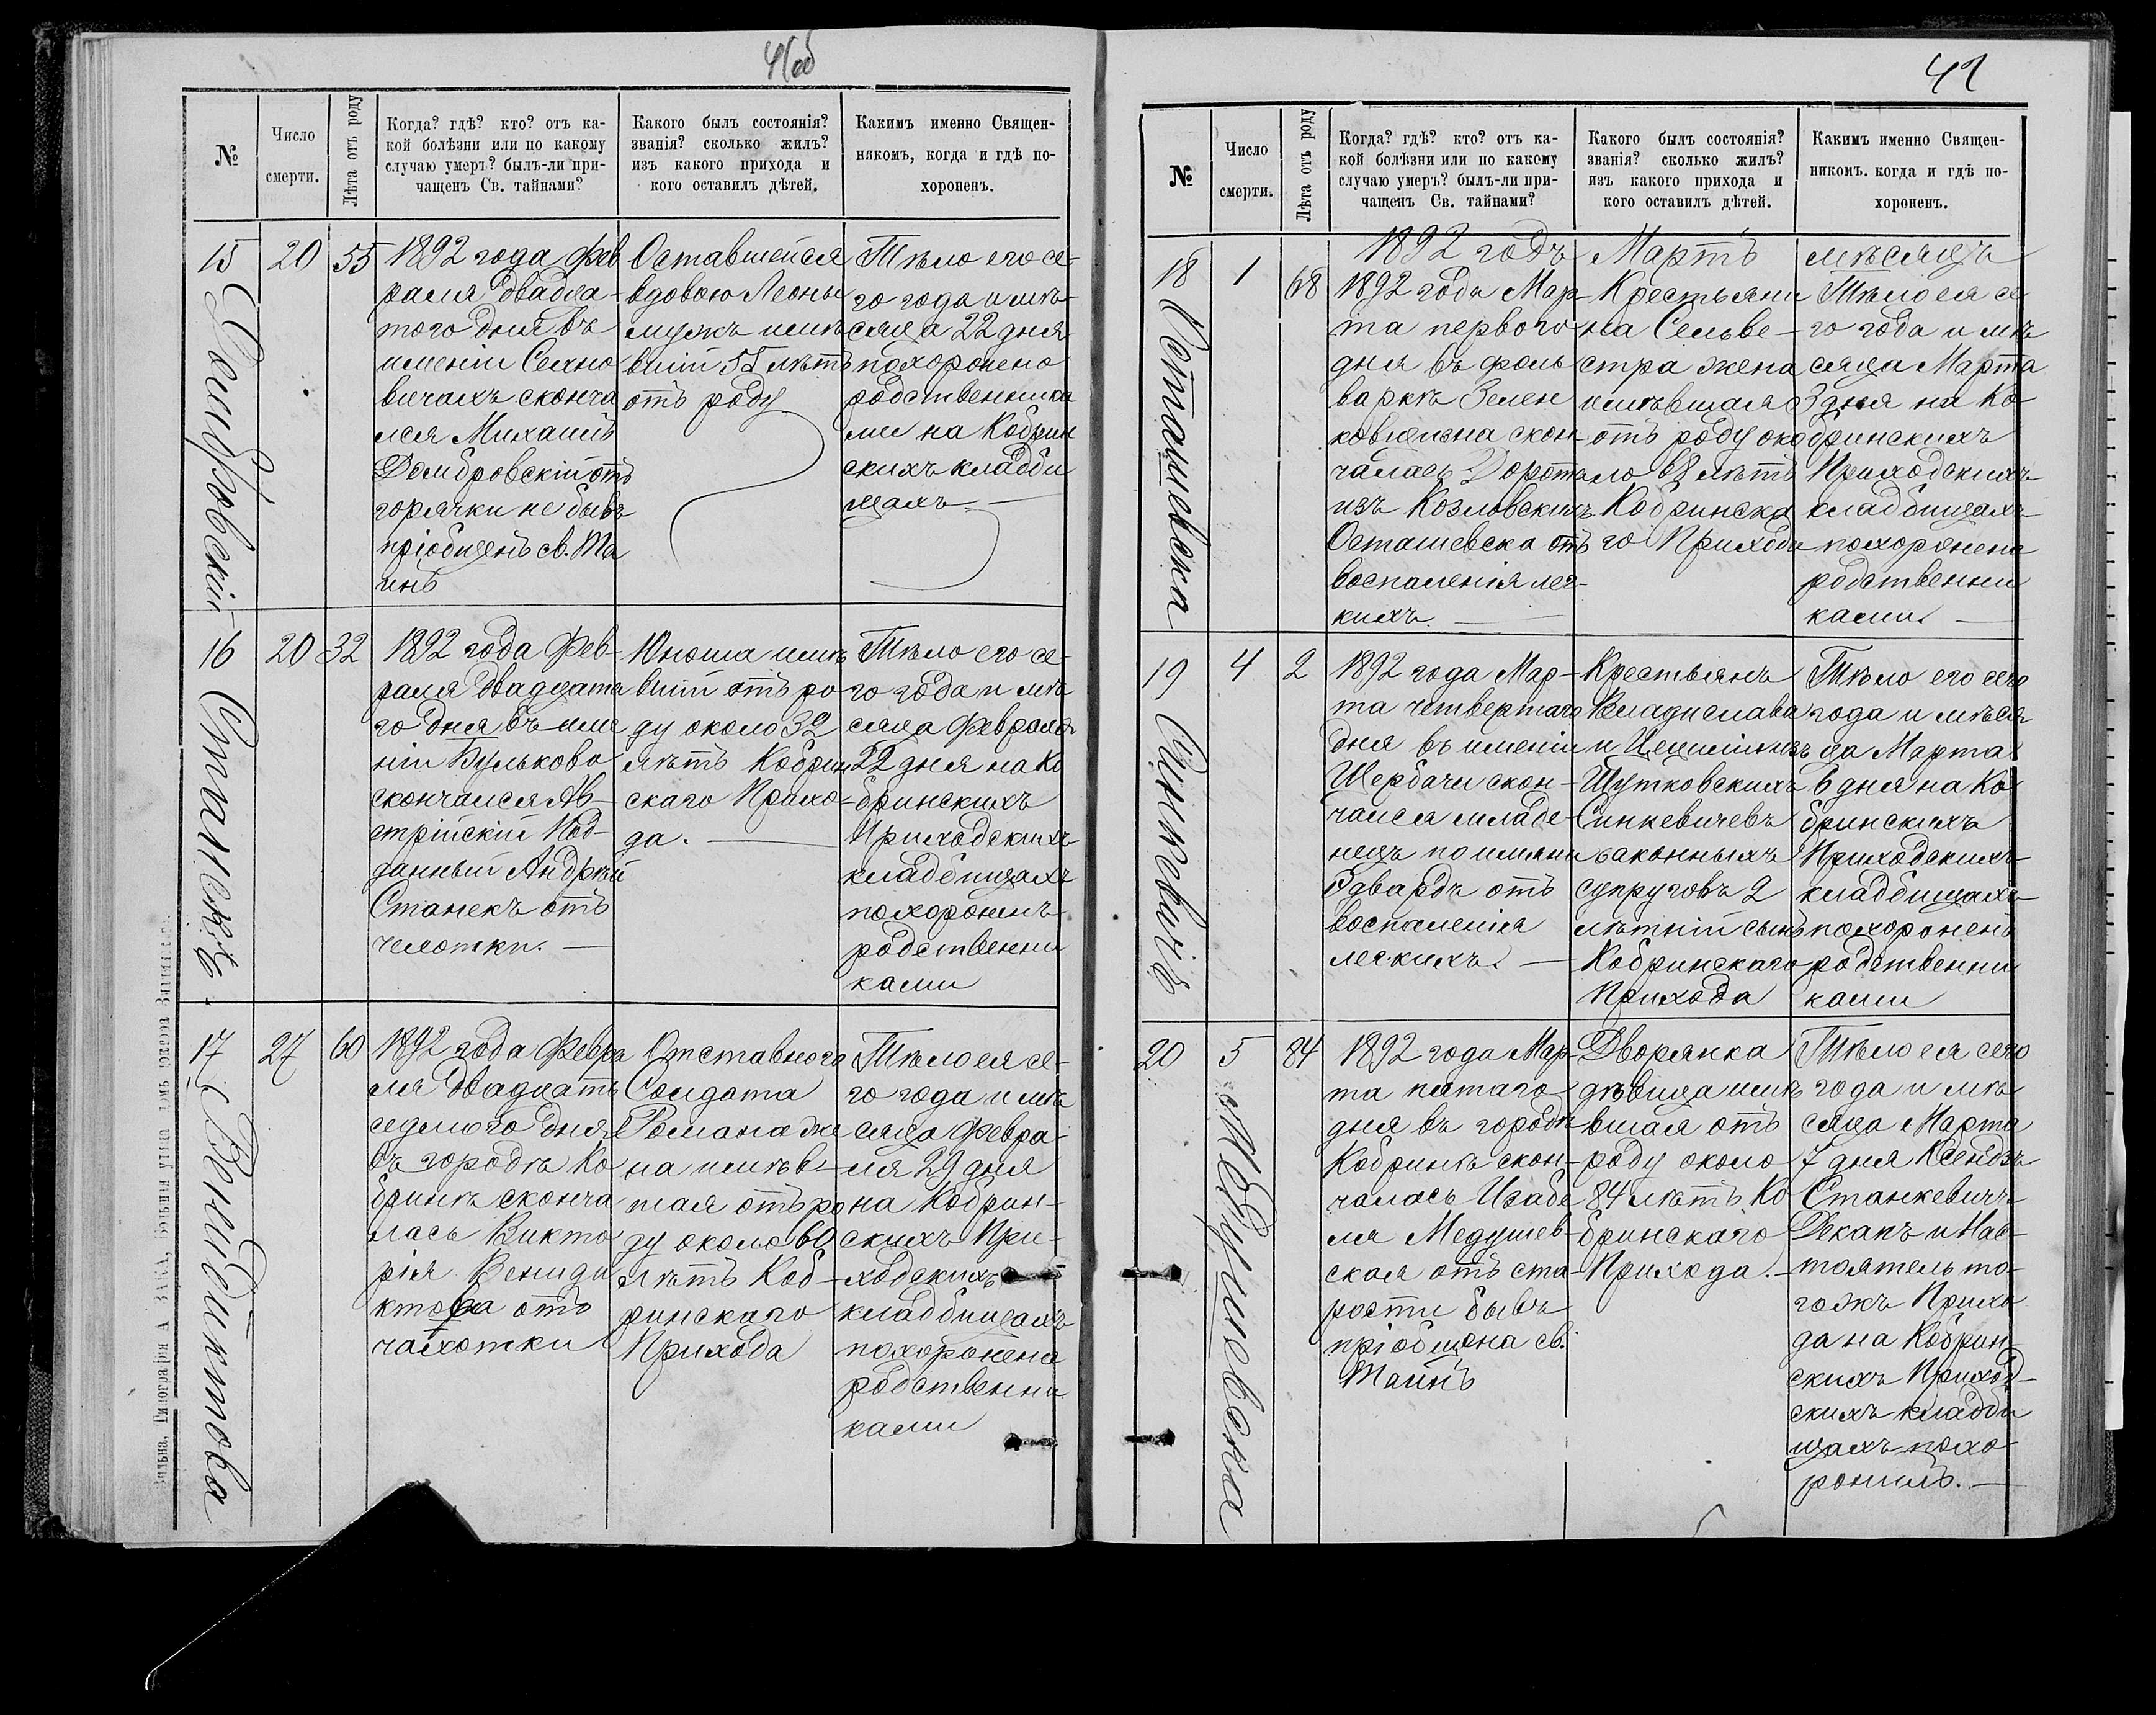 41
№
Число
смерти.
Лѣта отъ роду
Когда? гдѣ? кто? отъ ка-
кой болѣзни или по какому
случаю умеръ? былъ-ли при-
чащенъ Св. тайнами?
Какого былъ состоянія?
званія? сколько жилъ?
изъ какого прихода и
кого оставилъ дѣтей.
Какимъ именно Священ-
никомъ, когда и гдѣ по-
хороненъ.
15
Домбровскій
20
55
1892 года Фев
раля двадца-
того дня въ
имѣніи Сехно
вичахъ сконча
лся Михаилъ
Домбровскій отъ
горячки не бывъ
пріобщенъ св. Та
инъ
Оставшейся
вдовою Леоны
мужъ имѣ
вшій 55 лѣтъ
отъ роду
Тѣло его се-
го года и мѣ-
сяца 22 дня
похоронено
родственника
ми на Кобрин
скихъ кладби
щахъ
16
Станекъ
20
32
1892 года Фев-
раля двадцата
го дня въ имѣ
ніи Вульково
скончался Ав-
стрійскій Под-
данный Андрѣй
Станекъ отъ
чахотки.
Юноша имѣ
вшій отъ ро-
ду около 32
лѣтъ Кобрин
скаго Прихо-
да.
Тѣло его се-
го года и мѣ
сяца Февраля
22 дня на Ко
бринскихъ
Приходскихъ
кладбищахъ
похороненъ
родственни
ками
17
Венидиктова
27
60
1892 года Февра
ля двадцать
седмого дня
въ городѣ Ко
бринѣ сконча
лась Викто
рія Вениди
ктова отъ
чахотки
Отставного
Солдата
Романа же
на имѣв-
шая отъ ро
ду около 60
лѣтъ Коб-
ринскаго
Прихода
Тѣло ея се-
го года и мѣ
сяца Февра-
ля 29 дня
на Кобрин-
скихъ При-
ходскихъ
кладбищахъ
похоронено
родственни
ками
Вильна, Типографія А.
41
№
Число
смерти.
Лѣта отъ роду
Когда? гдѣ? кто? отъ ка-
кой болѣзни или по какому
случаю умеръ? былъ-ли при-
чащенъ Св. тайнами?
Какого былъ состоянія?
званія? сколько жилъ?
изъ какого прихода и
кого оставилъ дѣтей.
Какимъ именно Священ-
никомъ. когда и гдѣ по-
хороненъ.
1892 годъ Мартъ мѣсяцъ
18
Осташевска
1
68
1892 года Мар-
та первого
дня въ фоль
варкѣ Зелен
ковщизна скон-
чалась Дорота
изъ Козловскихъ
Осташевска отъ
воспаленія лег-
кихъ.
Крестьяни
на Сельве-
стра жена
имѣвшая
отъ роду око
ло 68 лѣтъ
Кобринска
го Прихода
Тѣло ея се
го года и мѣ
сяца Марта
3 дня на Ко-
бринскихъ
Приходскихъ
кладбищахъ
похоронена
родственни
ками.
19
Синкевичъ
4
2
1892 года Мар-
та четвертаго
дня въ имѣніи
Щербачи скон-
чался младе-
нецъ по имяни
Эдвардъ отъ
воспаленія
легкихъ.
Крестьянъ
Владислава
и Цециліи изъ
Шутковскихъ
Синкевичевъ
законныхъ
супруговъ 2
лѣтній сынъ
Кобринскаго
Прихода
Тѣло его сего
года и мѣся
ца Марта
6 дня на Ко
бринскихъ
Приходскихъ
кладбищахъ
похороненъ
родственни
ками
20
Медушевска
5
84
1892 года Мар-
та пятаго
дня въ городѣ
Кобринѣ скон-
чалась Изабе
ля Медушев-
ская отъ ста-
рости бывъ
пріобщена св.
Таинъ
Дворянка
дѣвица имѣ
вшая отъ
роду около
84 лѣтъ Ко
бринскаго
Прихода.
Тѣло ея сего
года и мѣ
сяца Марта
7 дня Ксендзъ
Станкевичъ
Деканъ и Нас-
тоятель то-
гожъ Прихо
да на Кобрин-
скихъ Приход-
скихъ кладби
щахъ похо
ронилъ.